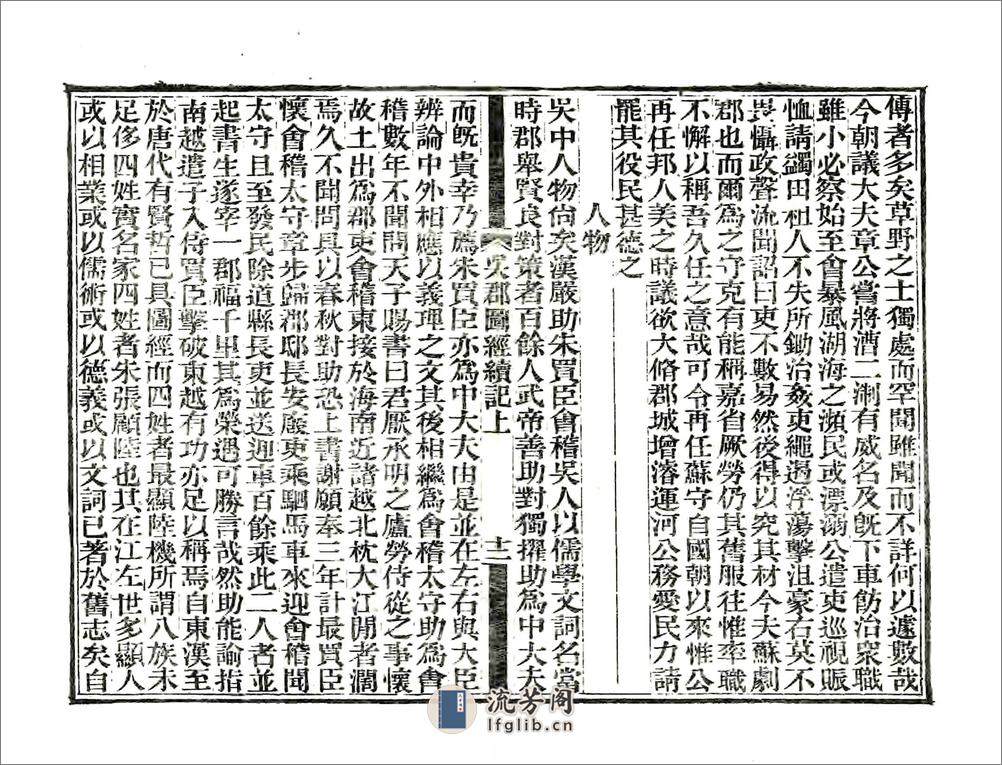 傳者多矣草野之士獨處而罕聞雖聞而不詳何以遽數哉
今朝議大夫章公嘗將漕二淛有威名及旣下車飭治衆職
雖小必察始至會暴風湖海之瀕民或漂溺公遣吏巡視賑
恤請蠲田租人不失所鋤治姦吏繩過浮蕩擊沮豪右莫不
畏懾政聲流聞詔曰吏不數易然後得以究其材今夫蘇劇
郡也而爾爲之守克有能稱嘉省厥勞仍其舊服往惟率職
不懈以稱吾久任之意哉可令再任蘇守自國朝以來惟公
再任邦人美之時議欲大脩郡城增濬運河公務愛民力請
罷其役民甚德之
人物
吳中人物尙矣漢嚴助朱買臣會稽吳人以儒學文詞名當
時郡舉賢良對策者百餘人武帝善助對獨擢助爲中大夫
吳郡圖經續記上
十二
而旣貴幸乃薦朱買臣亦爲中大夫由是並在左右與大臣
辨論中外相應以義理之文其後相繼爲會稽太守助爲會
稽數年不聞問天子賜書曰君厭承明之廬勞侍從之事懷
故土出爲郡吏會稽東接於海南近諸越北枕大江閒者濶
焉久不聞問具以春秋對助恐上書謝願奉三年計最買臣
懷會稽太守章步歸郡邸長安廄吏乘駟馬車來迎會稽聞
太守且至發民除道縣長吏並送迎車百餘乘此二人者並
起書生遂宰一郡福千里其爲榮遇可勝言哉然助能諭指
南越遣子入侍買臣擊破東越有功亦足以稱焉自東漢至
於唐代有賢哲已具圖經而四姓者最顯陸機所謂八族未
足侈四姓實名家四姓者朱張顧陸也其在江左世多顯人
或以相業或以儒術或以德義或以文詞已著於舊志矣自
流芳阁
lfglib.cn